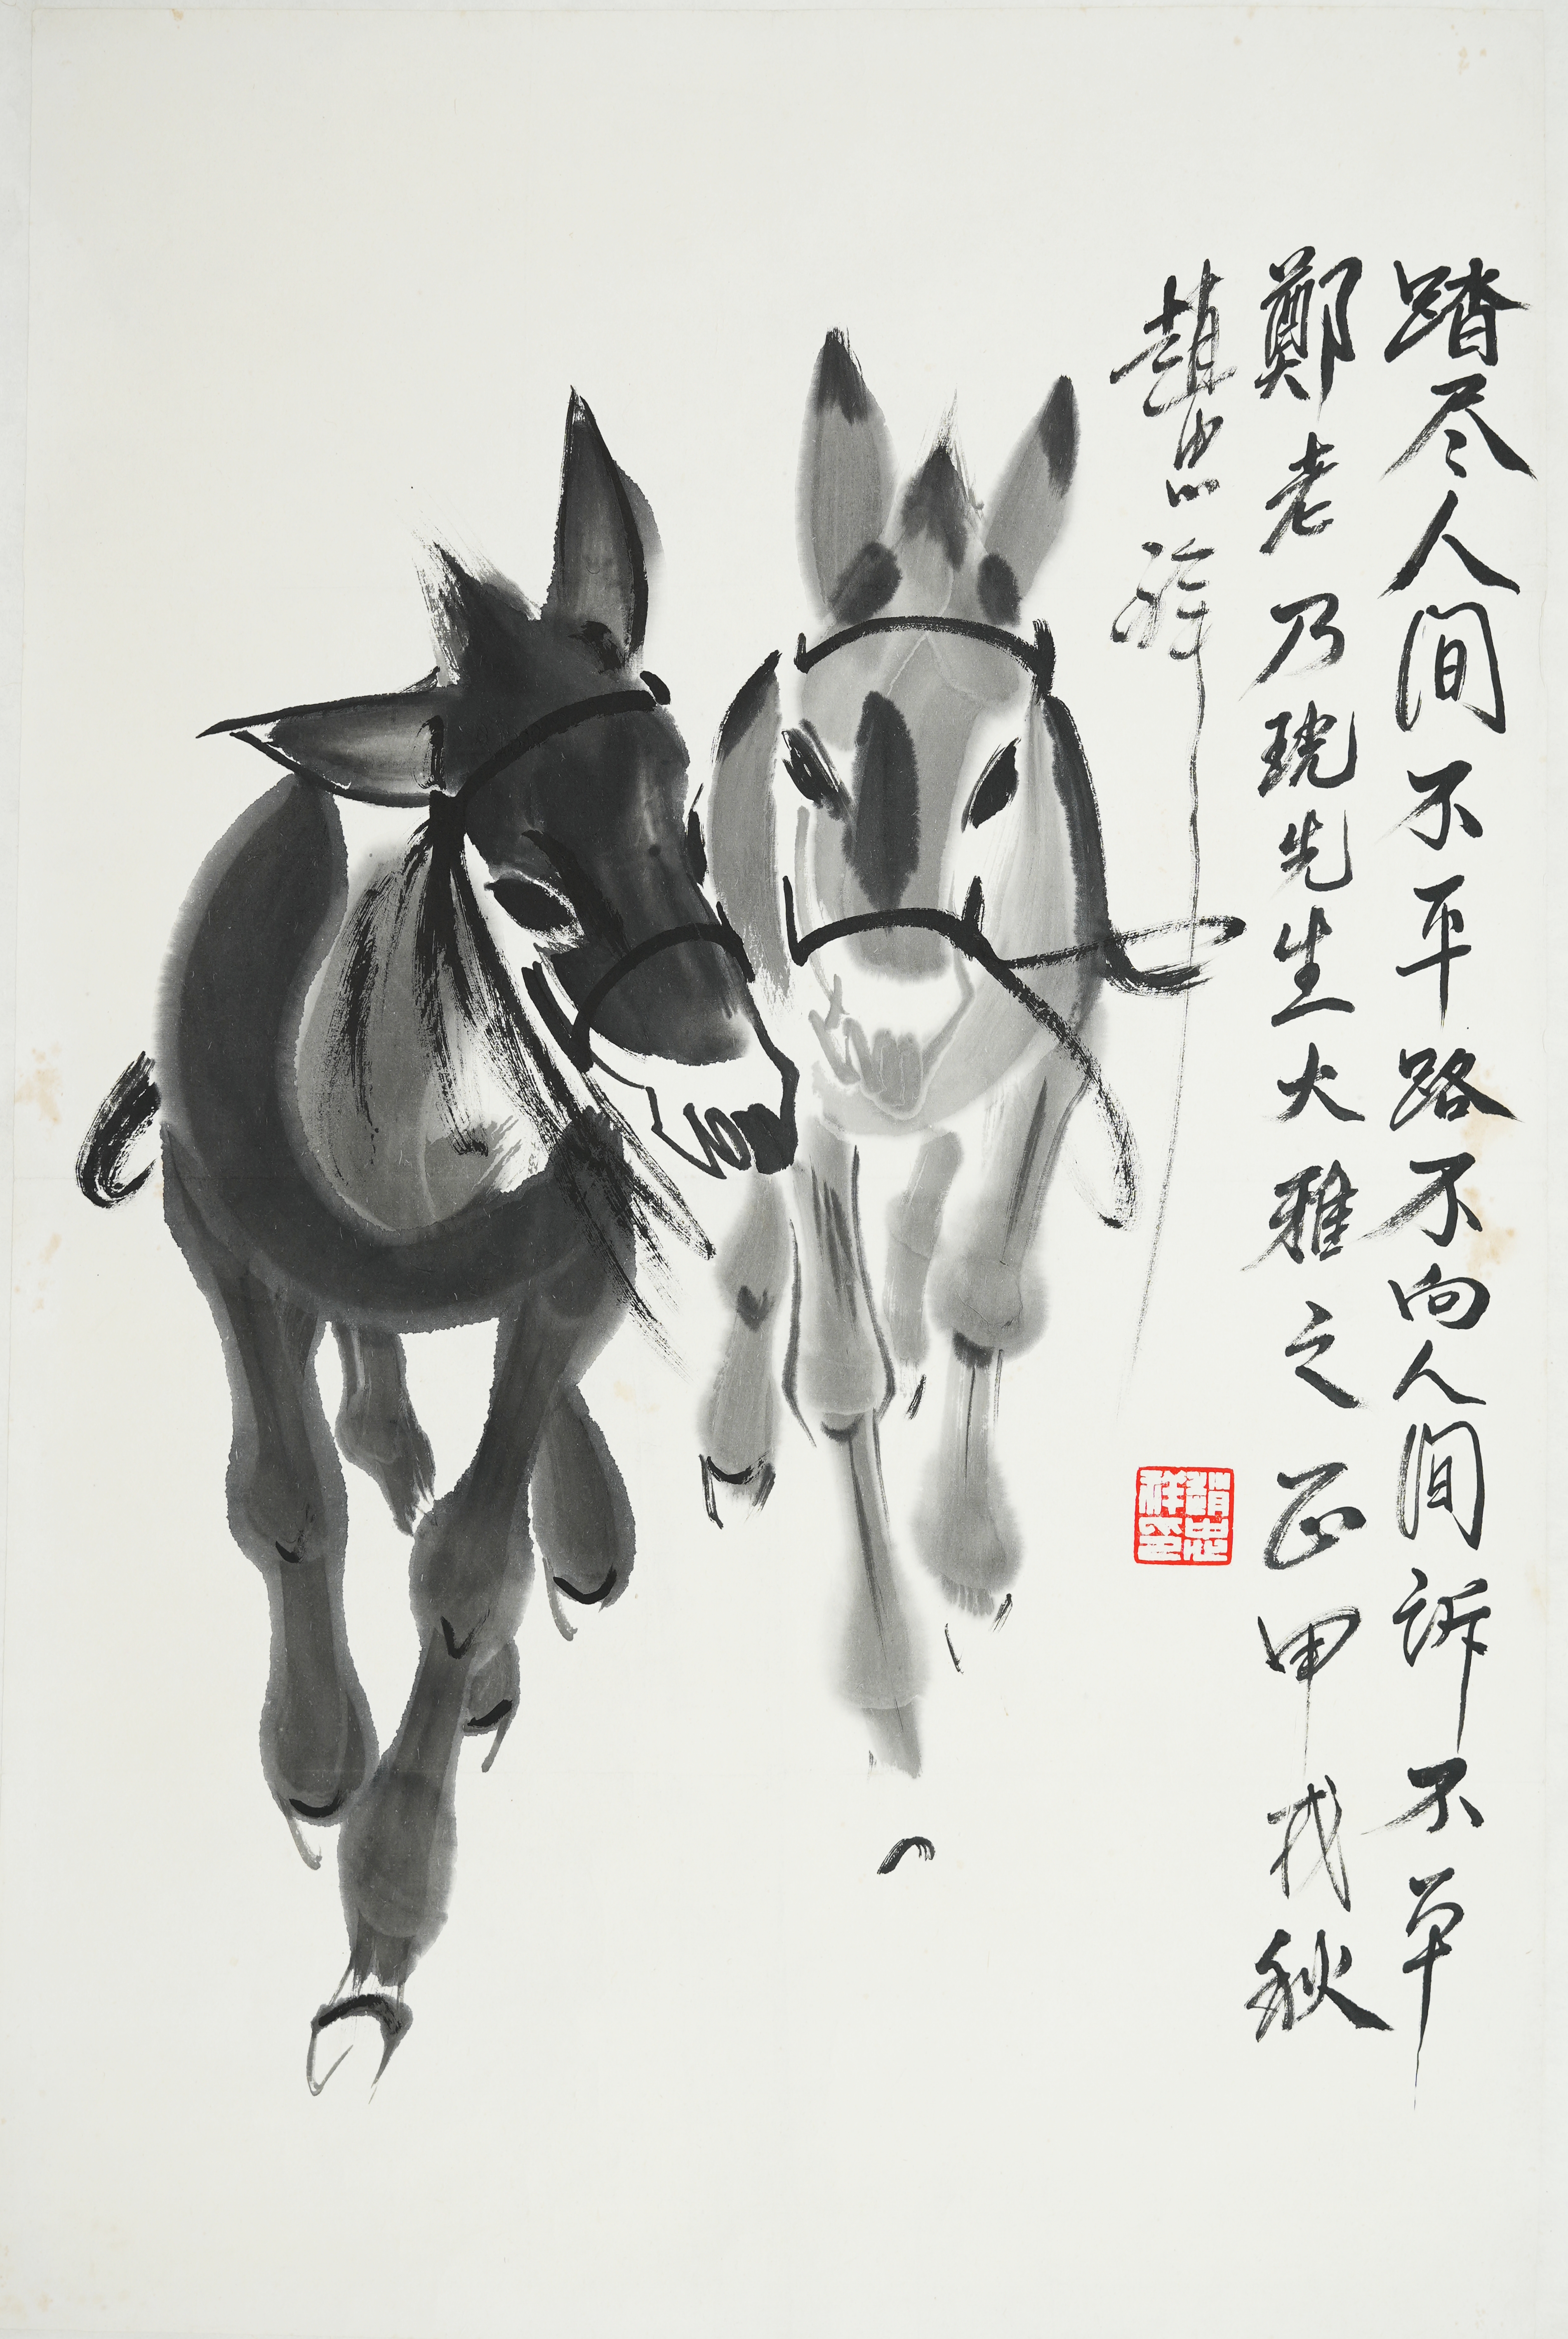 踏尽人间不平路不向人间诉不平
鄭老乃珖先生大雅之正甲戌秋
趙忠祥
趙忠祥印